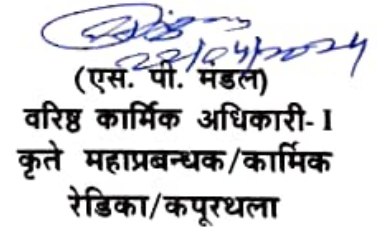 22/04/2024
(एस. पी. मंडल)
वरिष्ठ कार्मिक अधिकारी- I
कृते महाप्रबन्धक/कार्मिक
रेडिका/कपूरथला